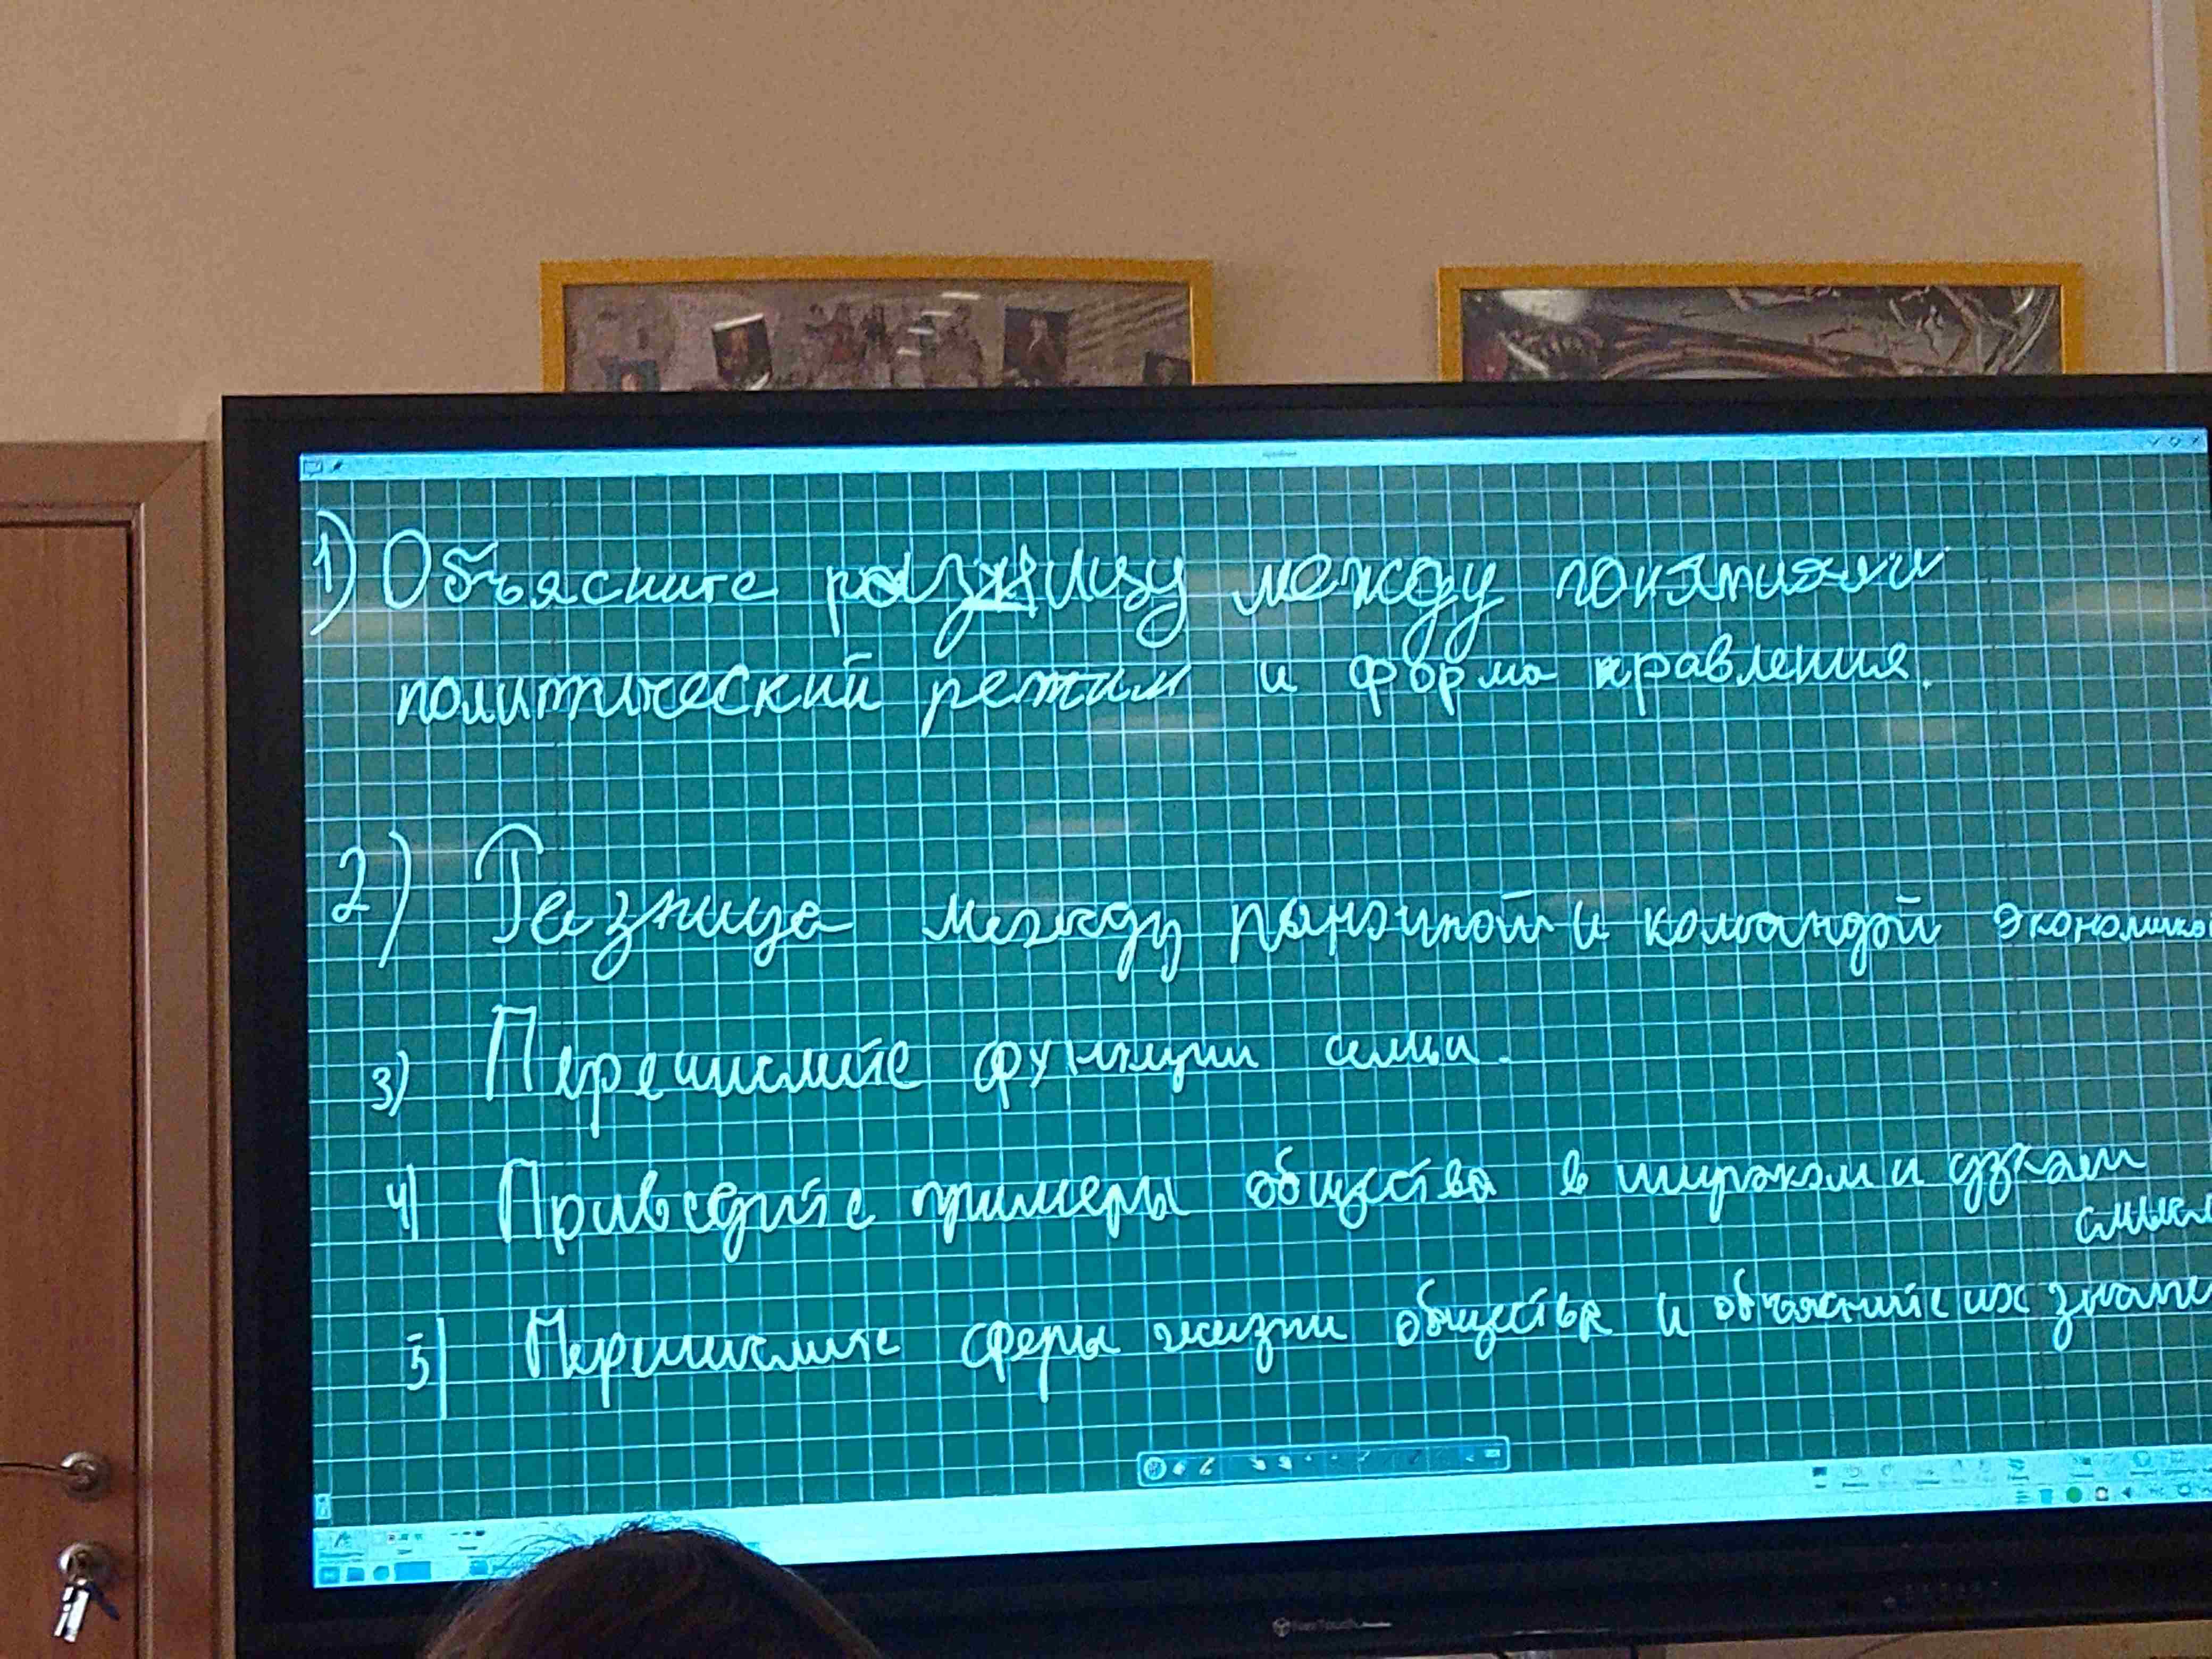 1) Объясните разницу между понятиями
политический режим и форма правления.
2) Разница между рыночной и командой экономико
3) Перечислите функции семьи.
4) Приведите примеры общества в широком и узком
смысл
5) Перечислите сферы жизни общества и объясните их значе